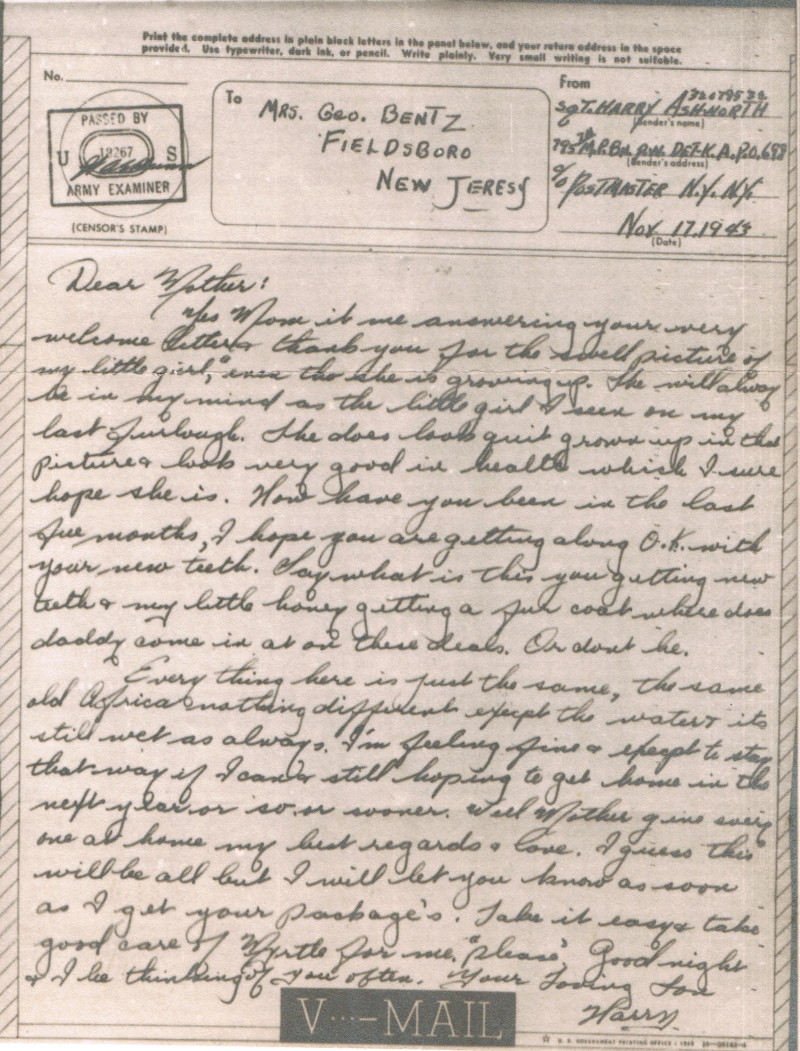 Print the complete address in plain block letters in the panel below, and your return address in the space
provided. Use typewriter, dark ink, or pencil. Write plainly. Very small writing is not suitable.
No.
PASSED BY
U S
18267
ARMY EXAMINER
(CENSOR'S STAMP)
To
MRS. GEO. BENTZ
FIELDSBORO
NEW JERESY
From
32079532
SGT. HARRY ASHWORTH
(Sender's name)
795th M.P. BN. P.W. DET-K. A.P.O. 698
(Sender's address)
c/o POSTMASTER N.Y. N.Y.
Nov. 17. 1943
(Date)
Dear Mother:
Yes Mom it me answering your very
welcome letter & thank you for the swell picture of
my little girl, even tho she is growing up. She will alway
be in my mind as the little girl I seen on my
last furlough. She does look quit grown up in that
picture & look very good in health which I sure
hope she is. How have you been in the last
few months, I hope you are getting along O.K. with
your new teeth. Say what is this you getting new
teeth & my little honey getting a fur coat where does
daddy come in at on these deals. Or dont he.
Every thing here is just the same, the same
old Africa nothing different except the water & its
still wet as always. I'm feeling fine & expept to stay
that way if I can & still hoping to get home in the
next year or so. or sooner. Well Mother give every
one at home my best regards & love. I guess this
will be all but I will let you know as soon
as I get your package's. Take it easy & take
good care of Myrtle for me, "please". Good night
& I be thinking of you often. Your Loving Son
Harry
V···-MAIL
U. S. GOVERNMENT PRINTING OFFICE : 1943